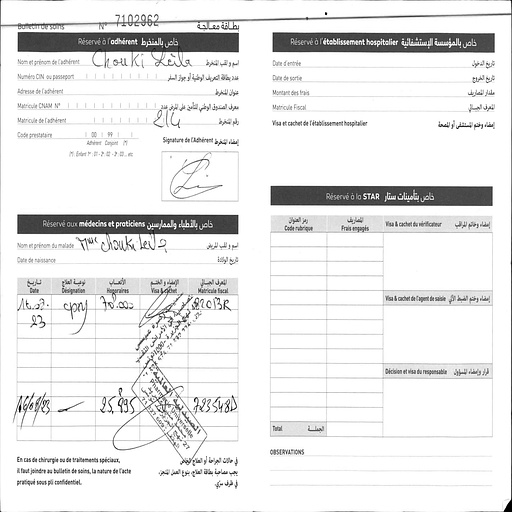 Bulletin de soins N° 7102962 بطاقة معالجة
Réservé à l'adhérent خاص بالمنخرط
Nom et prénom de l'adhérent Chouki Leila اسم و لقب المنخرط
Numéro CIN ou passeport عدد بطاقة التعريف الوطنية أو جواز السفر
Adresse de l'adhérent عنوان المنخرط
Matricule CNAM N°
Matricule de l'adhérent 214 رقم المنخرط
Code prestataire 00 99
Adhérent Conjoint (*)
(*) : Enfant 1er : 01 - 2e : 02 - 3e : 03 ... etc
Signature de l'Adhérent إمضاء المنخرط
Réservé aux médecins et praticiens خاص بالأطباء والممارسين
Nom et prénom du malade Mme Chouki Leila اسم و لقب المريض
Date de naissance تاريخ الولادة
تاريخ نوعية العلاج الأتعاب الإمضاء و الختم المعرف الجبائي
Date Désignation Honoraires Visa & cachet Matricule fiscal
23 70.000
16/03/23 25,895 723548D
En cas de chirurgie ou de traitements spéciaux,
il faut joindre au bulletin de soins, la nature de l'acte
pratiqué sous pli confidentiel.
في حالات الجراحة أو العلاج الخاص
يجب مصاحبة بطاقة العلاج، بنوع العمل المنجز،
في ظرف سري.
Réservé à l'établissement hospitalier خاص بالمؤسسة الإستشفائية
Date d'entrée تاريخ الدخول
Date de sortie تاريخ الخروج
Montant des frais مقدار المصاريف
Matricule Fiscal المعرف الجبائي
Visa et cachet de l'établissement hospitalier إمضاء وختم المستشفى أو المصحة
Réservé à la STAR خاص بتأمينات ستار
رمز العنوان المصاريف
Code rubrique Frais engagés
Visa & cachet du vérificateur إمضاء وخاتم المراقب
Visa & cachet de l'agent de saisie
Décision et visa du responsable قرار وإمضاء المسؤول
Total الجملة
OBSERVATIONS